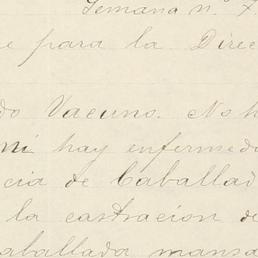 Semana n.º 7
e para la Direc
do Vacuno. No h
ni hay enfermeda
cia de Caballad
la castracion de
aballada mansa